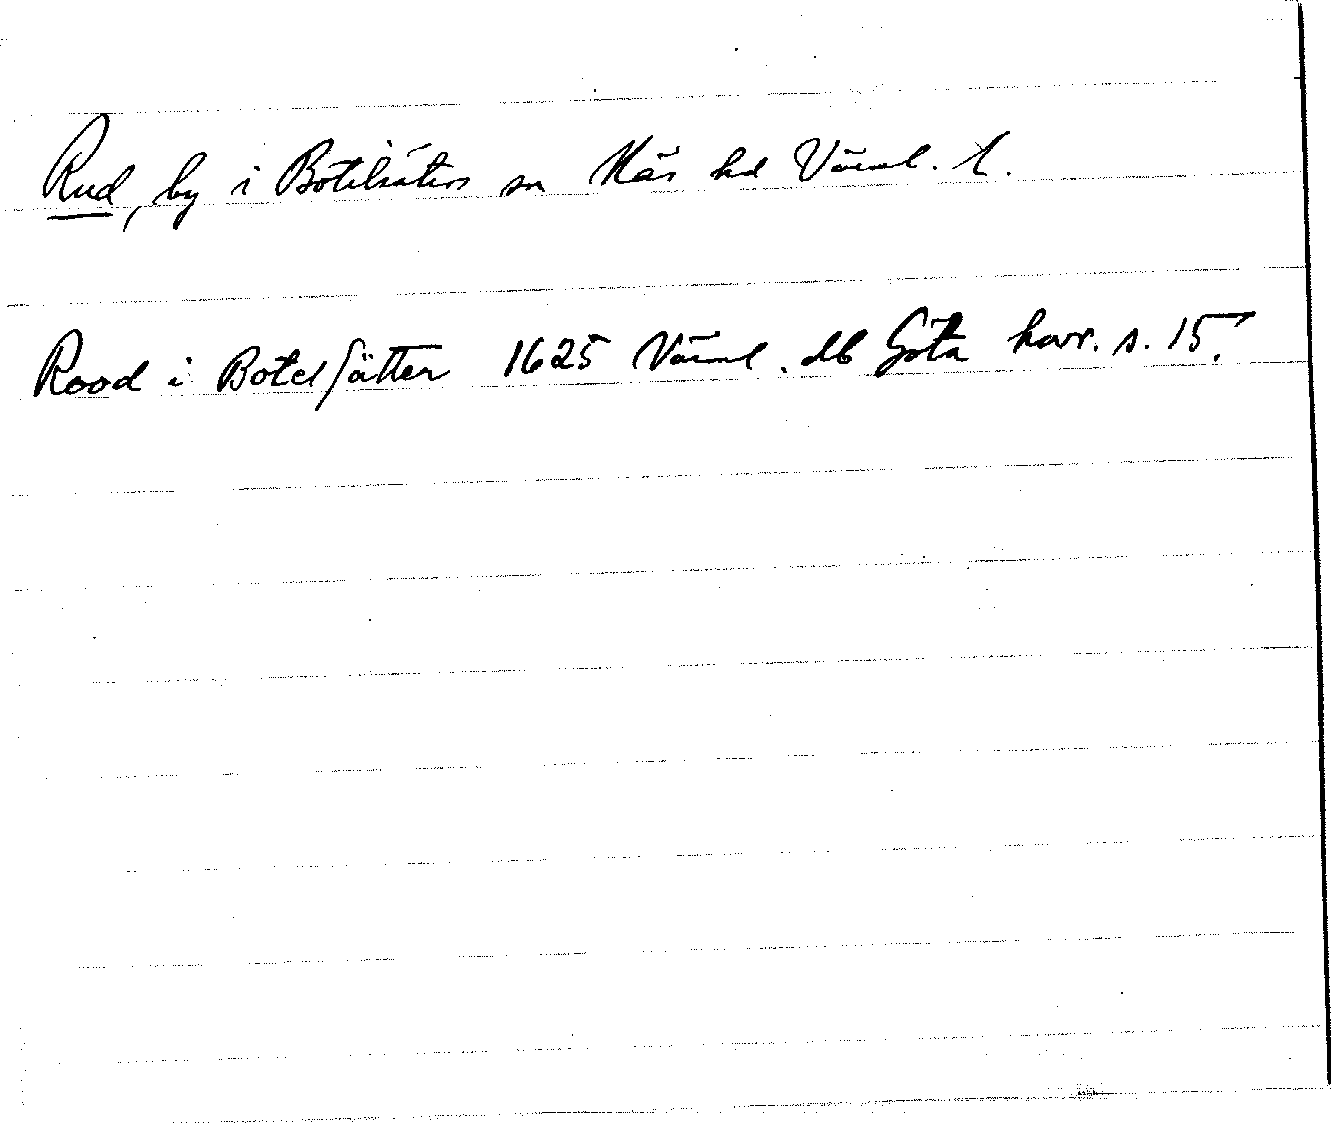 Rud, by i Botilsäters sn Näs hd Värml. l.
Rood i Botelsätter 1625 Värml. db Göta hovr. s. 15.